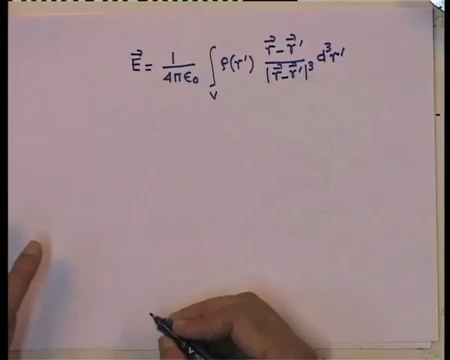 $\vec{E} = \frac{1}{4\pi\epsilon_0} \int_V \rho(r') \frac{\vec{r} - \vec{r}'}{|\vec{r} - \vec{r}'|^3} d^3r'$